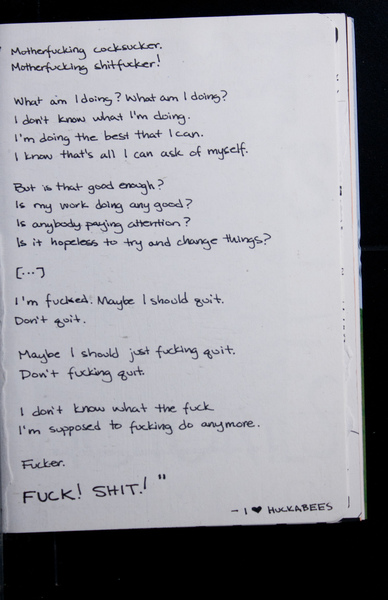 Motherfucking cocksucker.
Motherfucking shitfucker!
What am I doing? What am I doing?
I don't know what I'm doing.
I'm doing the best that I can.
I know that's all I can ask of myself.
But is that good enough?
Is my work doing any good?
Is anybody paying attention?
Is it hopeless to try and change things?
[...]
I'm fucked. Maybe I should quit.
Don't quit.
Maybe I should just fucking quit.
Don't fucking quit.
I don't know what the fuck
I'm supposed to fucking do anymore.
Fucker.
FUCK! SHIT!"
- I ♥ HUCKABEES